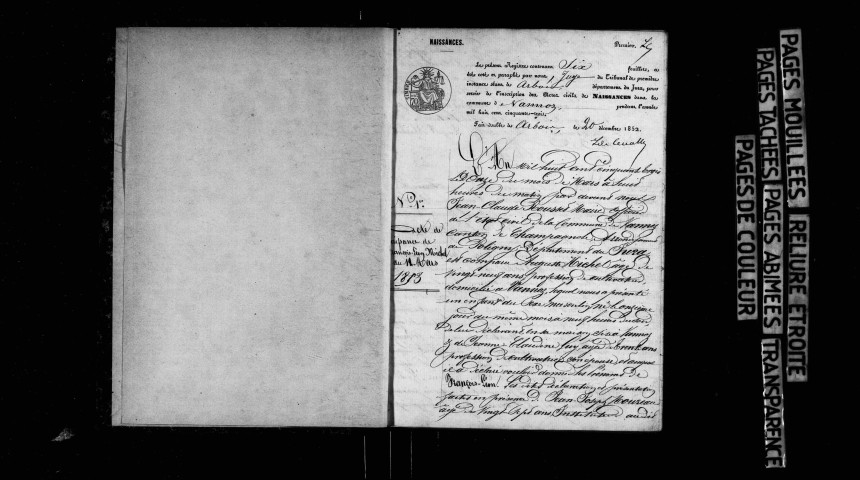 NAISSANCES.
Premier.
Le présent Registre contenant Six feuillets, a
été coté et paraphé par nous, Juge du Tribunal de première
instance séant de Arbois, département du Jura, pour
servir de l'inscription des Actes civils de NAISSANCES dans la
commune d e Vannoz, pendant l'année
mil huit cent cinquante-trois.
Fait double de Arbois, le 20 décembre 1852.
L'An Mil huit cent cinquante trois
le onze du mois de Mars à
heures du matin par devant nous
Jean Claude Maire officier
de l'état civil de la Commune de Vannoz
Canton de Champagnole, Arrondissement
de Poligny, Département du Jura
est comparu Auguste Michel âgé de
vingt neuf ans profession de cultivateur
domicilié à Vannoz, lequel nous a présenté
un enfant du sexe masculin né le onzième
jour du même mois à neuf heures
de lui déclarant en sa maison sise à Vannoz
et de Jeanne Claudine Guy âgée de trente ans
profession de cultivatrice son épouse
et a déclaré vouloir donner les Prénoms de
François Léon. Les dites déclaration et présentation
faites en présence de Jean Joseph
âgé de vingt sept ans Instituteur audit
N° 1er
Acte de
naissance de
François Léon Michel
du 11 Mars
1853
PAGES MOUILLEES RELIURE ETROITE
PAGES TACHEES PAGES ABIMEES TRANSPARENCE
PAGES DE COULEUR